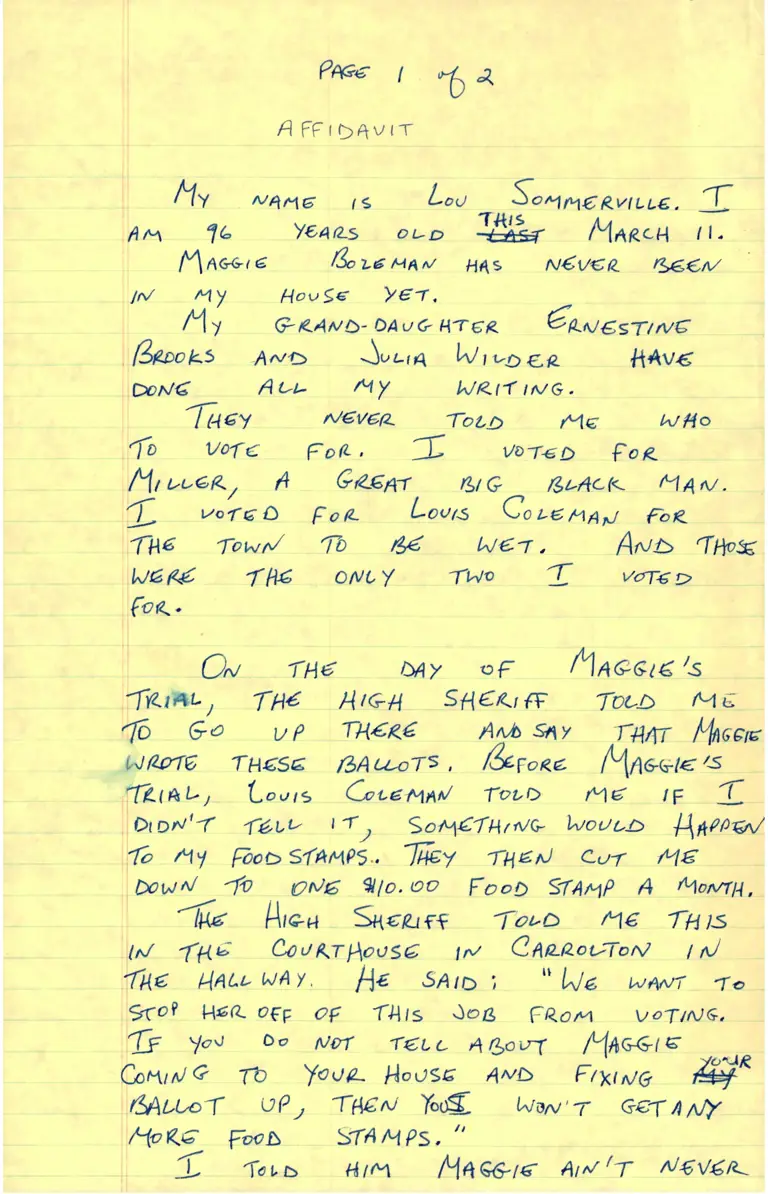 PAGE 1 of 2
AFFIDAVIT
MY NAME IS LOU SOMMERVILLE. I
THIS
AM 96 YEARS OLD LAST MARCH 11.
MAGGIE BOZEMAN HAS NEVER BEEN
IN MY HOUSE YET.
MY GRAND-DAUGHTER ERNESTINE
BROOKS AND JULIA WILDER HAVE
DONE ALL MY WRITING.
THEY NEVER TOLD ME WHO
TO VOTE FOR. I VOTED FOR
MILLER, A GREAT BIG BLACK MAN.
I VOTED FOR LOUIS COLEMAN FOR
THE TOWN TO BE WET. AND THOSE
WERE THE ONLY TWO I VOTED
FOR.
ON THE DAY OF MAGGIE'S
TRIAL, THE HIGH SHERIFF TOLD ME
TO GO UP THERE AND SAY THAT MAGGIE
WROTE THESE BALLOTS. BEFORE MAGGIE'S
TRIAL, LOUIS COLEMAN TOLD ME IF I
DIDN'T TELL IT, SOMETHING WOULD HAPPEN
TO MY FOOD STAMPS. THEY THEN CUT ME
DOWN TO ONE $10.00 FOOD STAMP A MONTH.
THE HIGH SHERIFF TOLD ME THIS
IN THE COURTHOUSE IN CARROLTON IN
THE HALLWAY. HE SAID: "WE WANT TO
STOP HER OFF OF THIS JOB FROM VOTING.
IF YOU DO NOT TELL ABOUT MAGGIE
YOUR
COMING TO YOUR HOUSE AND FIXING MY
BALLOT UP, THEN YOU WON'T GET ANY
MORE FOOD STAMPS."
I TOLD HIM MAGGIE AIN'T NEVER